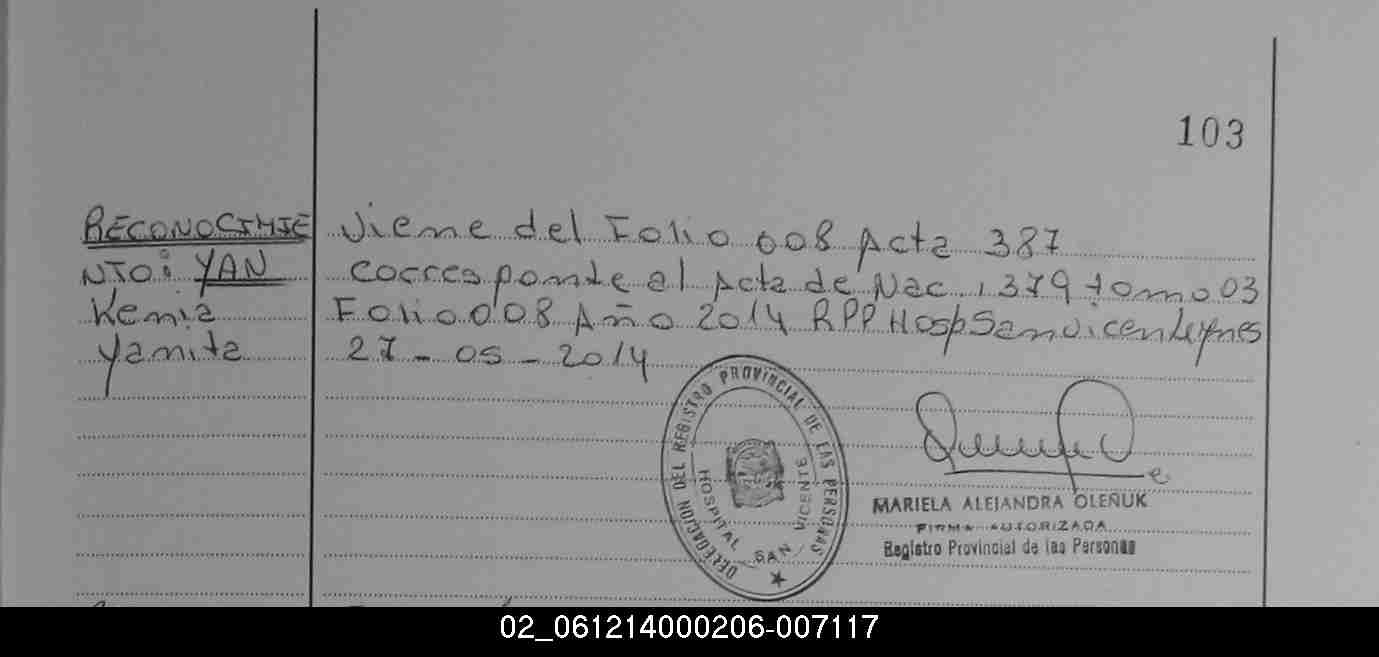 103
RECONOCIMIE
NTO: YAN
Kenia
Yamita
Viene del Folio 008 Acta 387
corresponde al Acta de Nac. 1379 tomo 03
Folio 008 Año 2014 RPP Hosp San Vicente
27-05-2014
DELEGACION DEL REGISTRO PROVINCIAL DE LAS PERSONAS
HOSPITAL SAN VICENTE
MARIELA ALEJANDRA OLEÑUK
FIRMA AUTORIZADA
Registro Provincial de las Personas
02_061214000206-007117